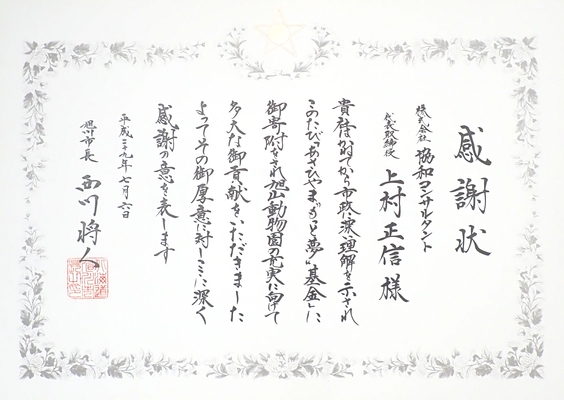 感謝状
株式会社 協和コンサルタント
代表取締役 上村正信様
貴社は予てから市政に深い理解を示され
このたび「あさひやま“もっと夢”基金」に
御寄附をされ旭山動物園の充実に向けて
多大な御貢献をいただきました
よってその御厚意に対しここに深く
感謝の意を表します
平成二十九年七月六日
旭川市長 西川将人